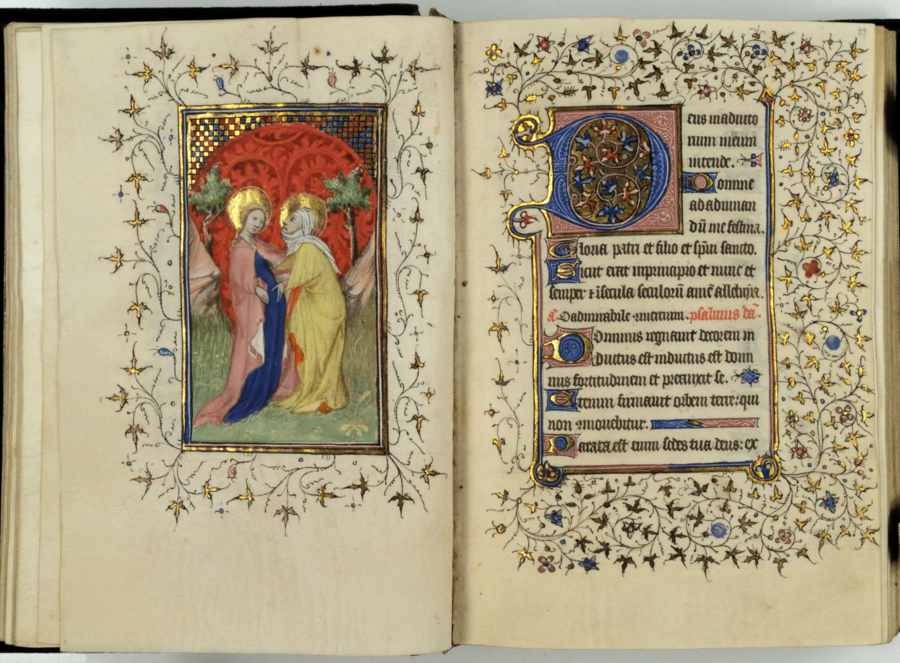 eus in adiuto
rium meum
intende.
Domine
ad adiuuan
dū me festina.
Gloria patri et filio et sp̄m sancto.
Sicut erat in principio et nunc et
semper ⁊ ī secula seculorū amē alleluya.
a. O admirabile ꝯmercium. psalmus dā.
Dominus regnauit decorem in
dutus est indutus est domi
nus fortitudinem et precinxit se.
Etenim firmauit orbem terre: qui
non ꝯmouebitur.
Parata est enim sedes tua deus: ex